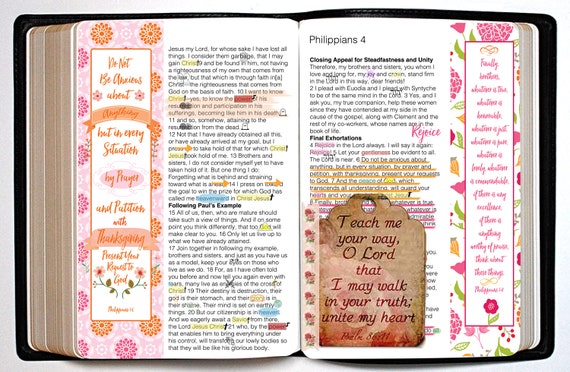 Do Not
Be Anxious
about
Anything
but in every
Situation
by Prayer
and Petition
with
Thanksgiving
Present Your
Request to
God
Philippians 4:6
Jesus my Lord, for whose sake I have lost all
things. I consider them garbage, that I may
gain Christ 9 and be found in him, not having
a righteousness of my own that comes from
the law, but that which is through faith in[a]
Christ—the righteousness that comes from
God on the basis of faith. 10 I want to know
Christ—yes, to know the power of his
resurrection and participation in his
sufferings, becoming like him in his death,
11 and so, somehow, attaining to the
resurrection from the dead.
12 Not that I have already obtained all this,
or have already arrived at my goal, but I
press on to take hold of that for which Christ
Jesus took hold of me. 13 Brothers and
sisters, I do not consider myself yet to have
taken hold of it. But one thing I do:
Forgetting what is behind and straining
toward what is ahead, 14 I press on toward
the goal to win the prize for which God has
called me heavenward in Christ Jesus.
Following Paul's Example
15 All of us, then, who are mature should
take such a view of things. And if on some
point you think differently, that too God will
make clear to you. 16 Only let us live up to
what we have already attained.
17 Join together in following my example,
brothers and sisters, and just as you have us
as a model, keep your eyes on those who
live as we do. 18 For, as I have often told
you before and now tell you again even with
tears, many live as enemies of the cross of
Christ. 19 Their destiny is destruction, their
god is their stomach, and their
shame. Their mind is set on earthly
things. 20 But our citizenship is in heaven.
And we eagerly await a Savior from there,
the Lord Jesus Christ, 21 who, by the power
that enables him to bring everything under
his control, will transform our lowly bodies so
that they will be like his glorious body.
Philippians 4
Closing Appeal for Steadfastness and Unity
Therefore, my brothers and sisters, you whom I
love and long for, my joy and crown, stand firm
in the Lord in this way, dear friends!
2 I plead with Euodia and I plead with Syntyche
to be of the same mind in the Lord. 3 Yes, and I
ask you, my true companion, help these women
since they have contended at my side in the
cause of the gospel, along with Clement and the
rest of my co-workers, whose names are in the
book of life.
Rejoice
Final Exhortations
4 Rejoice in the Lord always. I will say it again:
Rejoice! 5 Let your gentleness be evident to all.
The Lord is near. 6 Do not be anxious about
anything, but in every situation, by prayer and
petition, with thanksgiving, present your requests
to God. 7 And the peace of God, which
transcends all understanding, will guard your
hearts and your
8 Finally, brothers
whatever is
Teach me
your way,
O Lord
that
I may walk
in your truth;
unite my heart
Psalm 86:11
Finally
brothers,
whatever is true,
whatever is
honorable,
whatever is just,
whatever is pure,
whatever is lovely
whatever is
commendable,
if there is
excellence,
if there is
anything
worthy of praise,
think about
these things.
Philippians 4:8